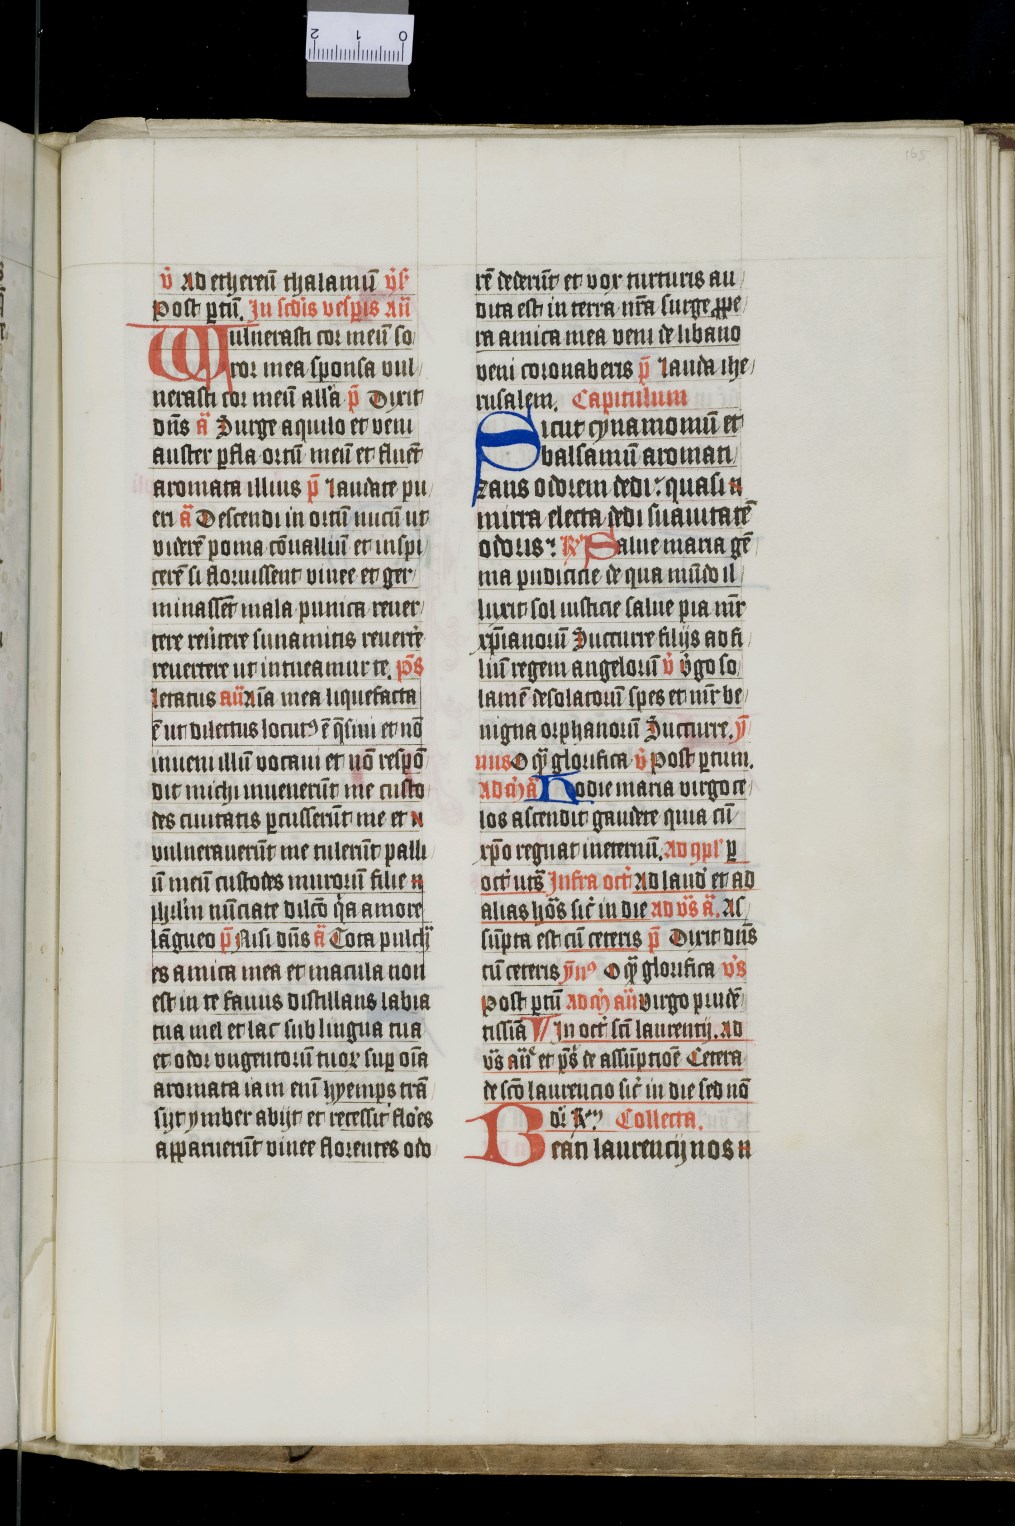 v̓ Ad ethereū thalamū v̓s̓
Post ꝑtū. In scd̓is vesꝑis Añ
Wulnerasti cor meū so
ror mea sponsa vul
nerasti cor meū all'a p̄ Dixit
dn̄s ā Surge aquilo et veni
auster ꝑfla ortū meū et fluēt
aromata illius p̄ laudate pu
eri ā Descendi in ortū nucū ut
viderē poma cōualliū et inspi
cerē si floruissent vinee et ger
minassēt mala punica reuer
tere reu̓tere sunamitis reuert̓e
reuertere ut intueamur te. p̄s
letatus añ Aīa mea liquefacta
ē ut dilectus locutꝰ ē q̄siui et nō
inueni illū vocaui et nō respō
dit michi inuenerūt me custo
des ciuitatis ꝑcusserūt me et
vulnerauerūt me tulerūt palli
ū meū custodes murorū filie
ihrl'm nūciate dilc̄o q̓a amore
lāgueo p̄ Nisi dn̄s ā Tota pulch̄
es amica mea et macula non
est in te fauus distillans labia
tua mel et lac sub lingua tua
et odor vngentorū tuoꝝ suꝑ oīa
aromata iam enī hyemps trā
sijt ymber abijt et recessit flores
apparuerūt vinee florentes odo
rē dederūt et vox turturis au
dita est in terra nr̄a surge ꝓpe
ra amica mea veni de libano
veni coronaberis p̄ lauda ihe
rusalem. Capitulum
Sicut cynamomū et
balsamū aromati
zans odorem dedi: quasi
mirra electa dedi suauitatē
odoris: R̸ Salue maria gē
ma pudicicie de qua mūdo il
luxit sol iusticie salue pia mr̄
xp̄ianorū Succurre filijs ad fi
liū regem angelorū v̓ v̓go so
lamē desolatorū spes et mr̄ be
nigna orphanorū Succurre. ym̄
nus O q̄ glorifica v̓ Post ꝑtum.
Ad m̄ ā Hodie maria virgo ce
los ascendit gaudete quia cū
xp̄o regnat ineternū. Ad ꝯpl' ꝑ
oct̓ ut s̄ Infra oct̓ Ad laud̓ et ad
alias hōs sic̓ in die ad v̓s ā. As
sūpta est cū ceteris p̄ Dixit dn̄s
cū ceteris ym̄ꝰ O q̄ glorifica v̓s
Post ꝑtū ad m̄ añ virgo prudē
tissiā In oct̓ sc̄i laurentij. Ad
v̓s añ et p̄s de assūptiōe Cetera
de sc̄o laurencio sic̓ in die sed nō
dr̄ R̸ Collecta.
Beāti laurencij nos